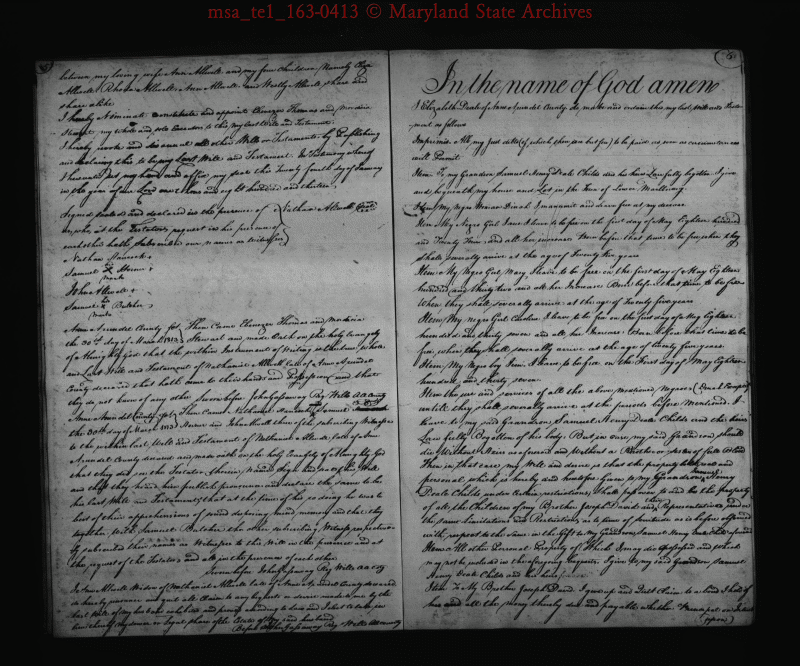 msa_te1_163-0413 © Maryland State Archives
between my loving wife Ann Allwell and my four children Namely
Allwell Rhoda Allwell Ann Allwell and Wesley Allwell share and
share alike
I hereby Nominate constitute and appoint Ebenezer Thomas and Mordecai
Stewart my whole and sole Executors to this my last Will and Testament
I hereby revoke and disannul all other Wills or Testaments by
and declaring this to be my Last Will and Testament. In Testimony whereof
I hereunto set my hand and affix my seal this Twenty fourth day of January
in the year of our Lord one thousand eight hundred and thirteen
Signed sealed and declared in the presence of Nathan Allwell
us, who at the Testators request in his presence of
each other hath Subscribed our names as Witnesses
Nathan
Samuel X
mark
John Allwell
Samuel X Butcher
mark
Anne Arundel County Sct. Then Came Ebenezer Thomas and Mordecai
the 30th day of March 1813 Stewart and made Oath on the holy Evangely
of Almighty God that the within Instrument of Writing is the true whole
and Last Will and Testament of Nathaniel Allwell late of Ann Arundel
County deceased that hath come to their hands and Possession and that
they do not know of any other Sworn before John Gassaway Reg Wills AA County
Anne Arundel County Sct Then Came Nathan Samuel
the 30th day of March 1813 and John Allwell three of the subscribing Witnesses
to the within Last Will and Testament of Nathaniel Allwell late of Ann
Arundel County deceased and made oath on the holy Evangely of Almighty God
that they did see the Testator therein Named Sign and Seal this Will
and that they heard him publish pronounce and declare the same to be
his last Will and Testament, that at the time of his so doing he was to
best of their apprehensions of sound disposing mind, memory and that they
together with Samuel Butcher the other subscribing Witness respectively
subscribed their names as Witnesses to this Will in the presence and at
the request of the Testator and all in the presence of each other
Sworn before John Gassaway Reg Wills AA Cty
I Ann Allwell Widow of Nathaniel Allwell late of Ann Arundel County deceased
do hereby renounce and quit all Claim to any bequest or devise made to me by the
last Will of my husband
my dower or legal share of the Estate of my said husband
Before John Gassaway Reg Wills AA County
In the name of God amen
I Elizabeth Deale of Ann Arundel County do make and ordain this my last Will and Testa
ment as follows
Imprimis All my Just debts (of which there are but few) to be paid as soon as circumstances
will Permit
Item To my Grandson Samuel Henry Deale Childs and his heirs Lawfully begotten I give
and bequeath my house and Lot in the Town of
Item My Negro Woman Dinah I manumit and leave free at my decease
Item My Negro Girl Jane I leave to be free on the first day of May Eighteen hundred
and Twenty Nine and all her increase born before that time to be free when they
shall severally arrive at the age of Twenty five years
Item My Negro Girl Mary I leave to be free on the first day of May Eighteen
hundred and thirty two and all her Increase Born before that time to be free
When they shall severally arrive at the age of Twenty five years
Item My Negro Girl Caroline I leave to be free on the first day of May Eighteen
hundred and thirty seven and all her Increase Born before that time to be
free when they shall severally arrive at the age of twenty five years
Item My Negro boy I leave to be free on the First day of May Eighteen
hundred and thirty seven
Item the use and services of all the above mentioned Negroes
untill they shall severally arrive at the periods before Mentioned I
leave to my said Grandson Samuel Henry Deale Childs and the heirs
Lawfully Begotten of his body. But in case my said Grandson should
die Without Heirs as aforesaid and without a Brother or Sister of full Blood
Then in that case my Will and desire is that the property both real and
personal which is hereby and heretofore given to my Grandson Samuel Henry
Deale Childs under certain restrictions, shall pass over to and be the property
of all the Children of my Brother Joseph David and their Representatives, under
the same limitations and Restrictions as to time of servitude as is before expressed
with respect to the same in the Gift to my Grandson Samuel Henry Deale Childs aforesaid
Item All other Personal Property of Which I may die Possessed and which
may not be included in the foregoing bequests, I give to my said Grandson Samuel
Henry Deale Childs and his heirs forever
Item To My Brother Joseph David I give up and Quit Claim to a bond I hold of
his and all the money thereby due and payable, whether Principal or Interest
(upon)